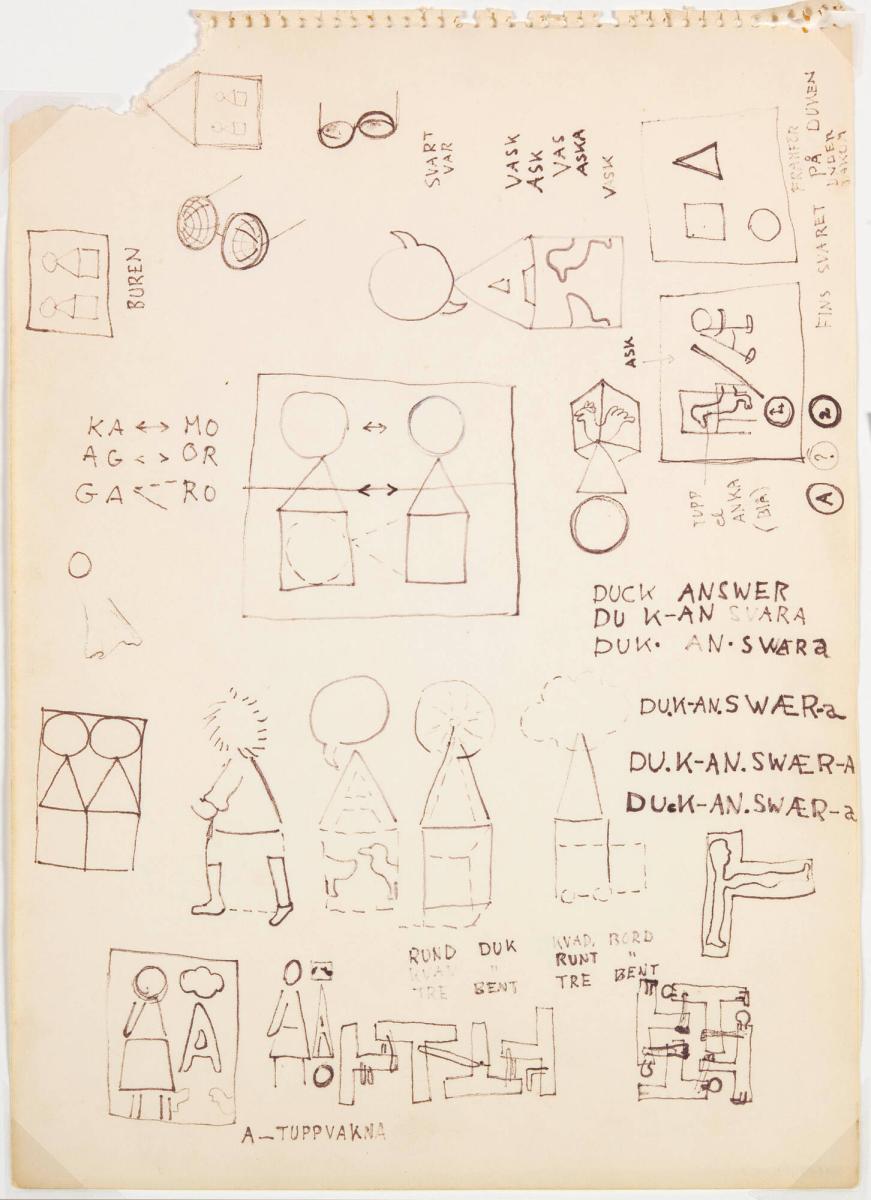 SVART
VAR
VASK
ASK
VAS
ASKA
VASK
FRAMFÖR
PÅ DUKEN
UNDER
FINS SVARET
BUREN
ASK
1
2
?
A
TUPP
el
ANKA
(BIA)
KA ↔ MO
AG <-> OR
GA RO
DUCK ANSWER
DU K-AN SVARA
DUK· AN·SWARa
DU.K-AN.SWÆR-a
DU.K-AN.SWÆR-A
DUcK-AN.SWÆR-a
RUND DUK
KVAD "
TRE BENT
KVAD. BORD
RUNT "
TRE BENT
A
A
A—TUPPVAKNA